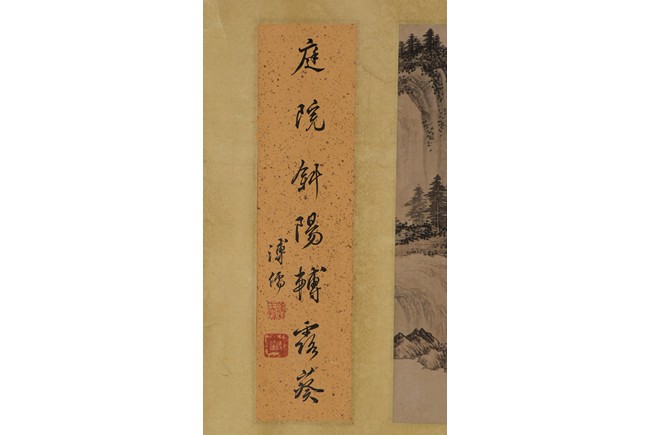 庭院斜陽轉露葵
溥儒